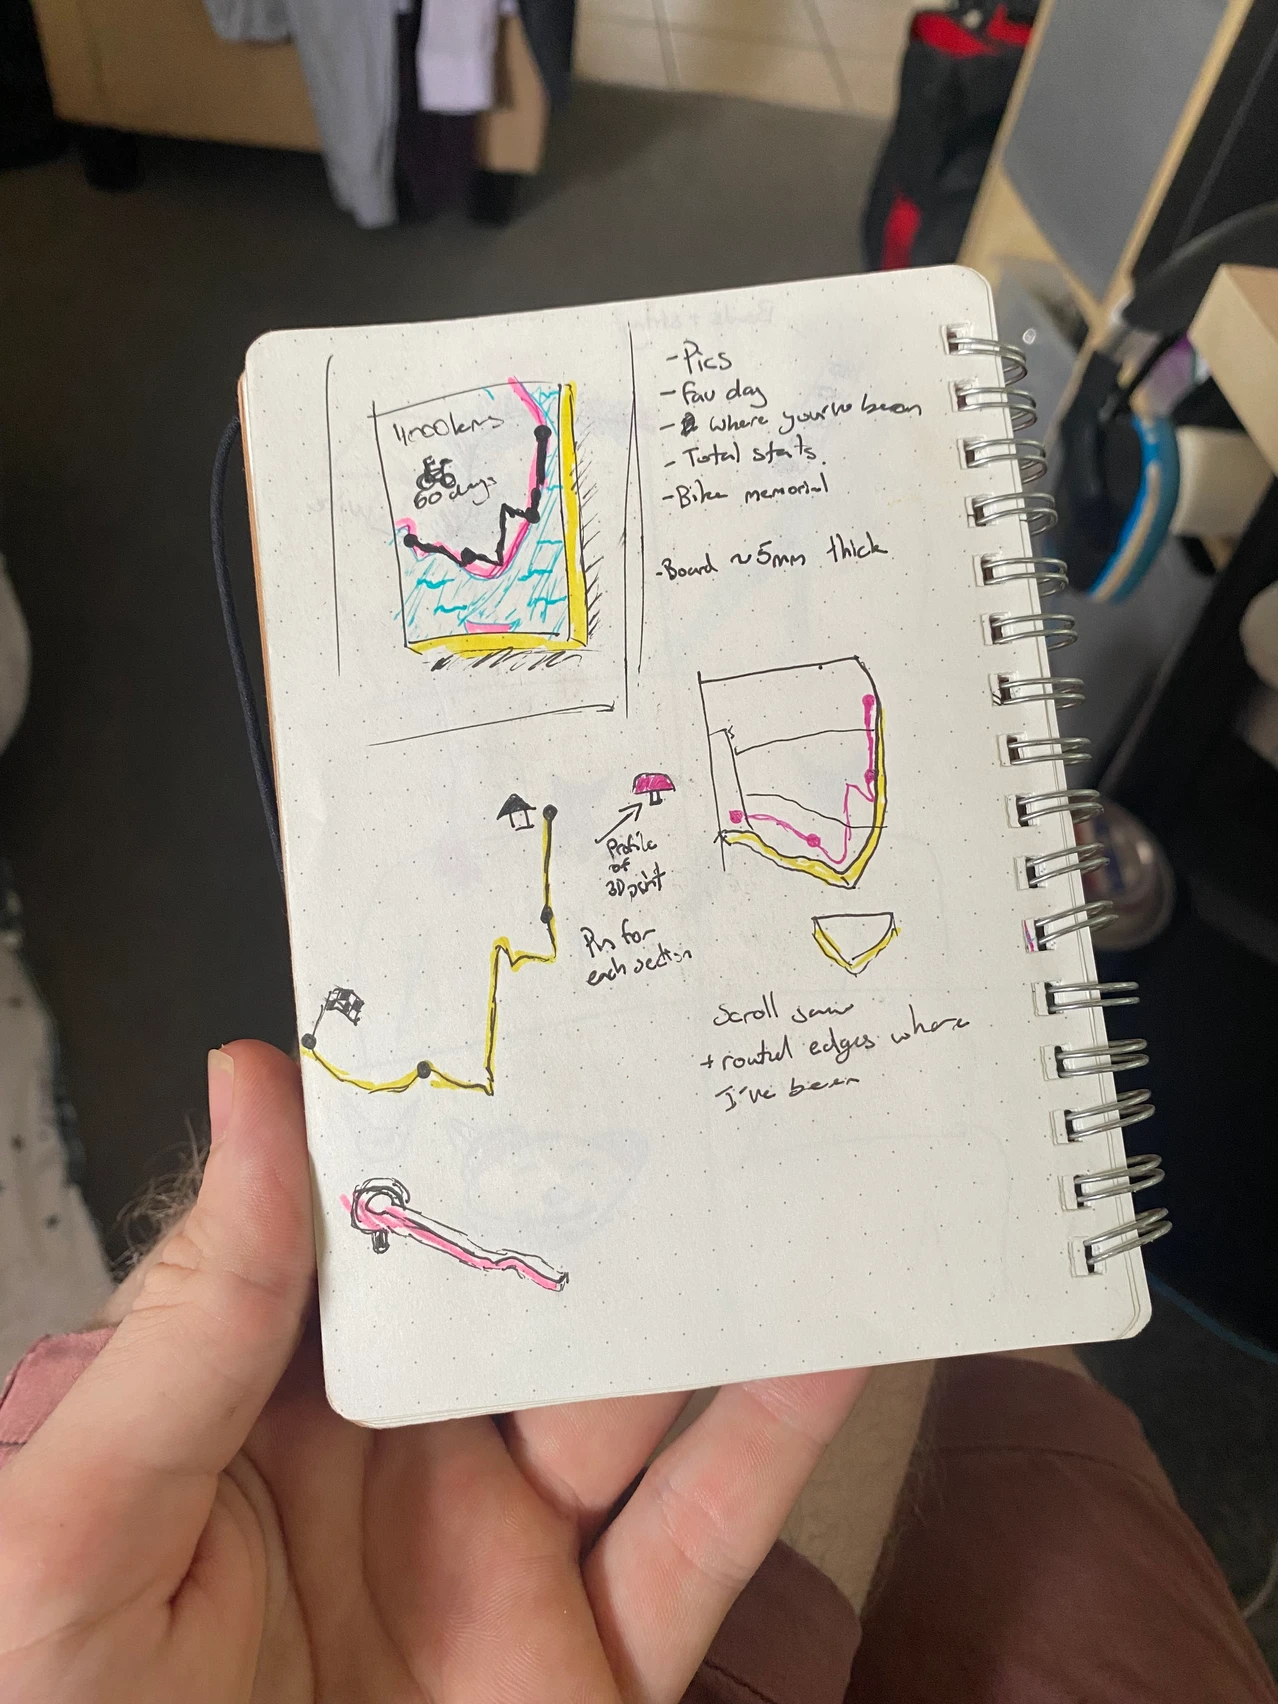 4000kms
60 days
- Pics
- Fav day
- where your've been
- Total stats.
- Bike memorial
- Board ~5mm thick
Profile
of
3D print
Pin for
each section
Scroll saw
+ routed edges where
I've been